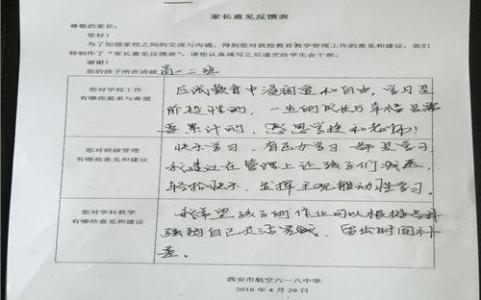 家长意见反馈表
尊敬的家长:
您好!
为了加强家校之间的交流与沟通,得到您对我校教育教学管理工作的意见和建议,我们
特制作了“家长意见反馈表”,请您认真填写之后递交给学生会干部。
谢谢!
您的孩子所在班级 高一二班
您对学校工作
有哪些要求与希望
应试教育中浸润童和自由,学习是
阶段性的,一生的成长乃幸福是需
要累计的,感恩学校和老师!
您对班级管理
有哪些意见和建议
快乐学习、有压力学习 都是学习
我建议在管理上让孩子们减压,
轻松快乐,发挥主观能动性学习。
您对学科教学
有哪些意见和建议
我希望孩子的作业可以根据
强弱自己灵活完成,留出时间补
差。
西安市航空六一八中学
2016 年 4 月 29 日